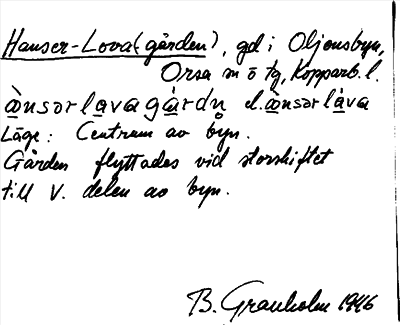 Hanser-Lova(gården), gd i Oljonsbyn,
Orsa sn o tg, Kopparb. l.
ànsərlavagárdn̥ el. ànsərlàva
Läge: Centrum av byn.
Gården flyttades vid storskiftet
till V. delen av byn.
B. Granholm 1946